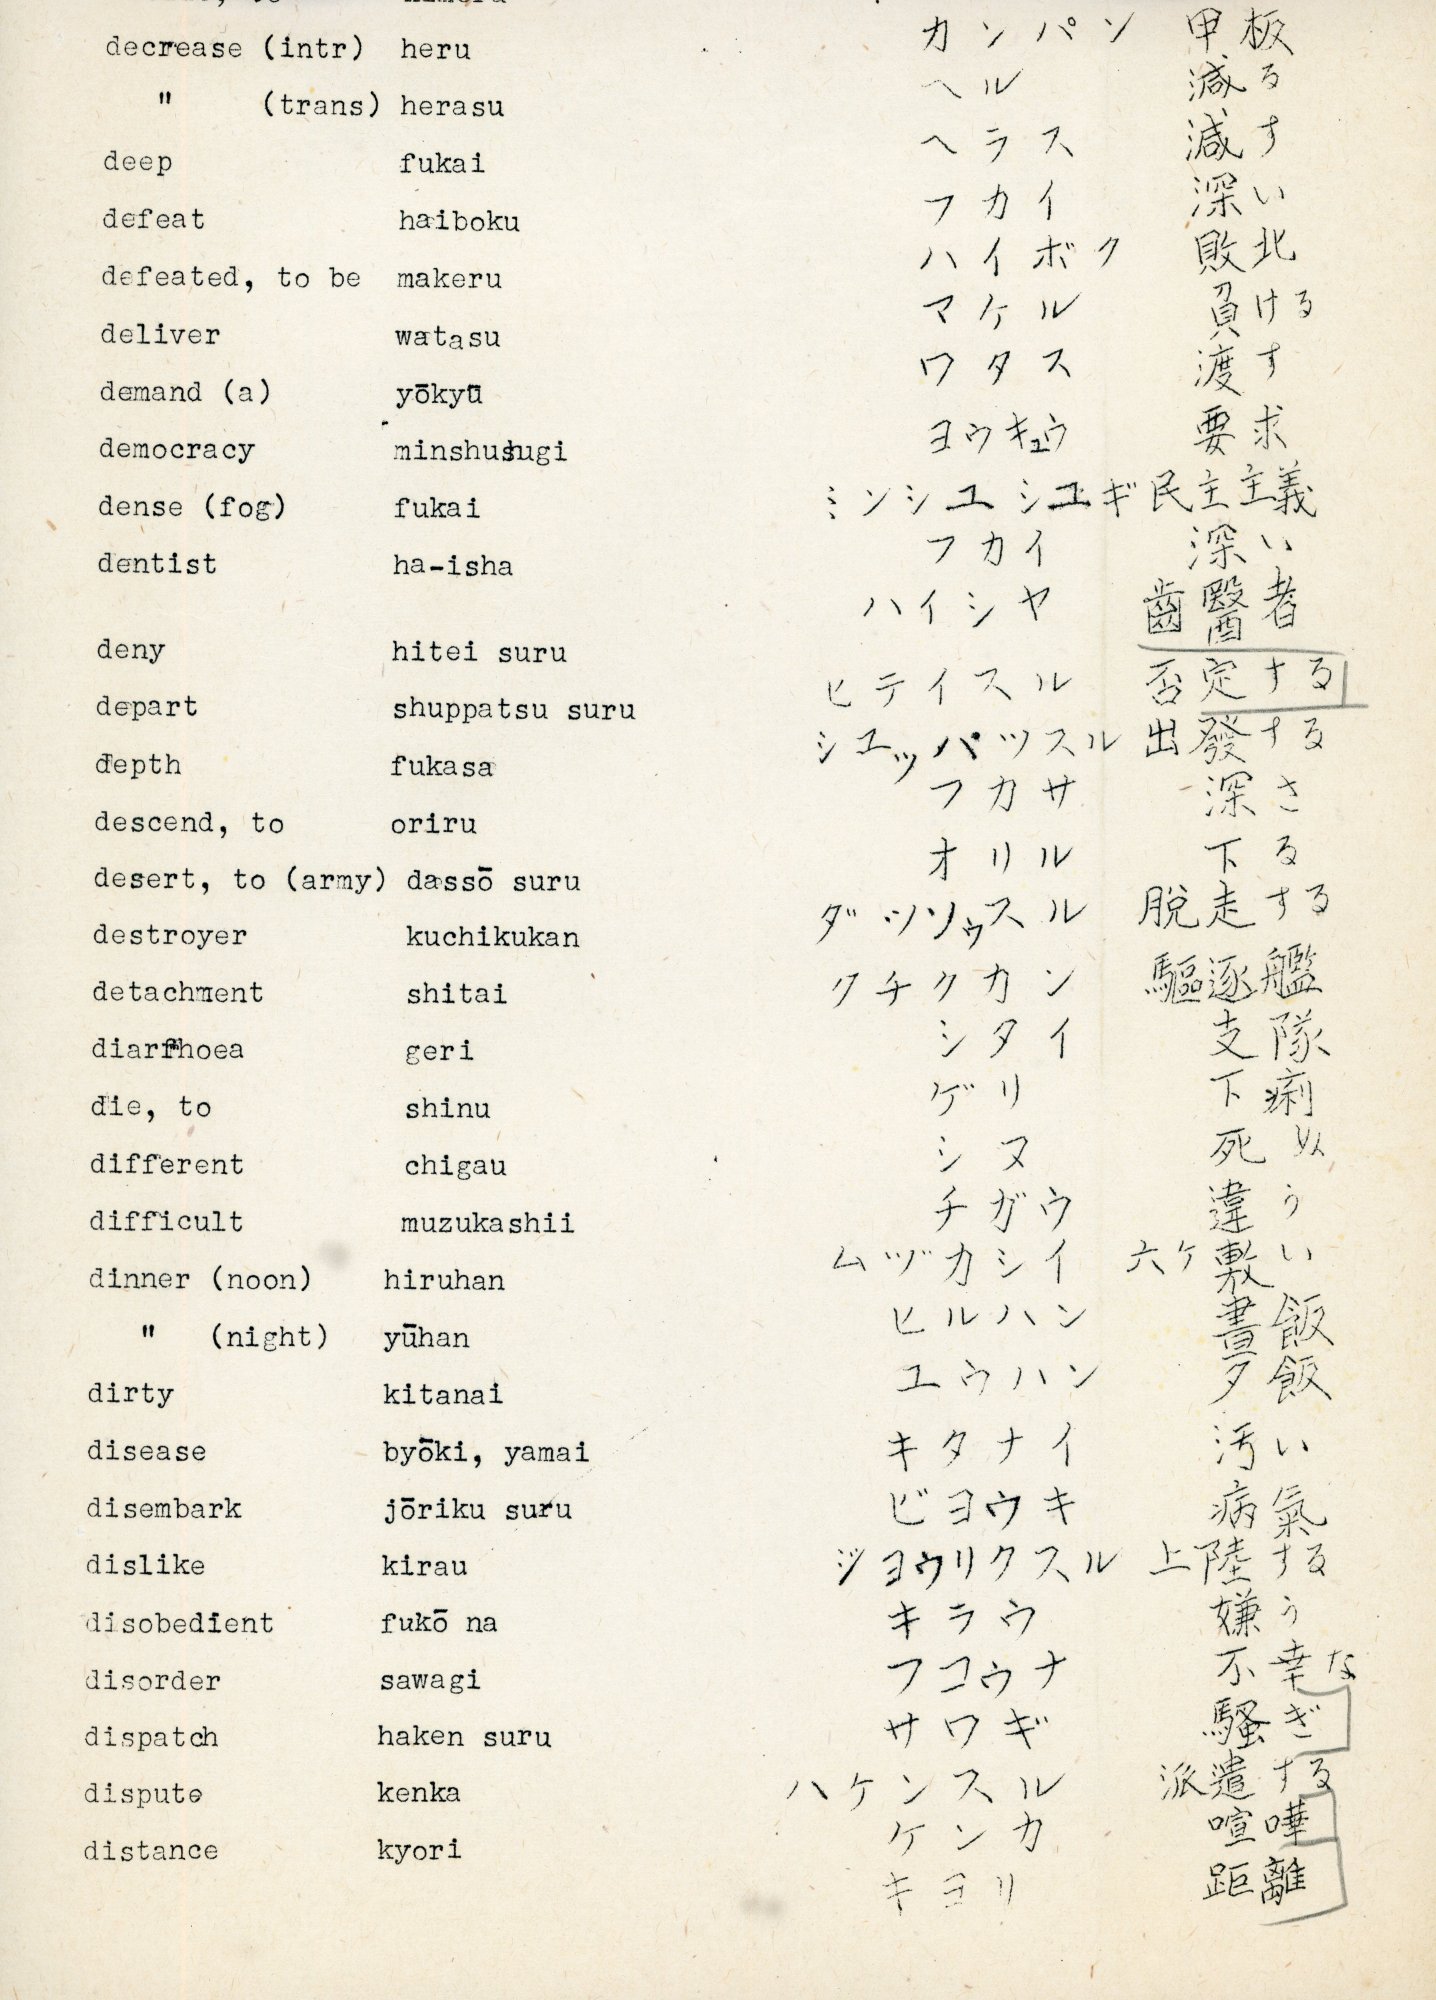 decrease (intr) heru カンパン 甲板
" (trans) herasu ヘル 減る
deep fukai ヘラス 減す
defeat haiboku フカイ 深い
defeated, to be makeru ハイボク 敗北
deliver watasu マケル 負ける
demand (a) yōkyū ワタス 渡す
democracy minshushugi ヨウキュウ 要求
dense (fog) fukai ミンシユシユギ 民主主義
dentist ha-isha フカイ 深い
ハイシヤ 齒醫者
deny hitei suru ヒテイスル 否定する
depart shuppatsu suru シユッパツスル 出發する
depth fukasa フカサ 深さ
descend, to oriru オリル 下る
desert, to (army) dassō suru ダツソウスル 脱走する
destroyer kuchikukan クチクカン 驅逐艦
detachment shitai シタイ 支隊
diarrhoea geri ゲリ 下痢
die, to shinu シヌ 死ぬ
different chigau チガウ 違う
difficult muzukashii ムヅカシイ 六ケ敷い
dinner (noon) hiruhan ヒルハン 晝飯
" (night) yūhan ユウハン 夕飯
dirty kitanai キタナイ 汚い
disease byōki, yamai ビヨウキ 病氣
disembark jōriku suru ジヨウリクスル 上陸する
dislike kirau キラウ 嫌う
disobedient fukō na フコウナ 不幸な
disorder sawagi サワギ 騒ぎ
dispatch haken suru ハケンスル 派遣する
dispute kenka ケンカ 喧嘩
distance kyori キヨリ 距離